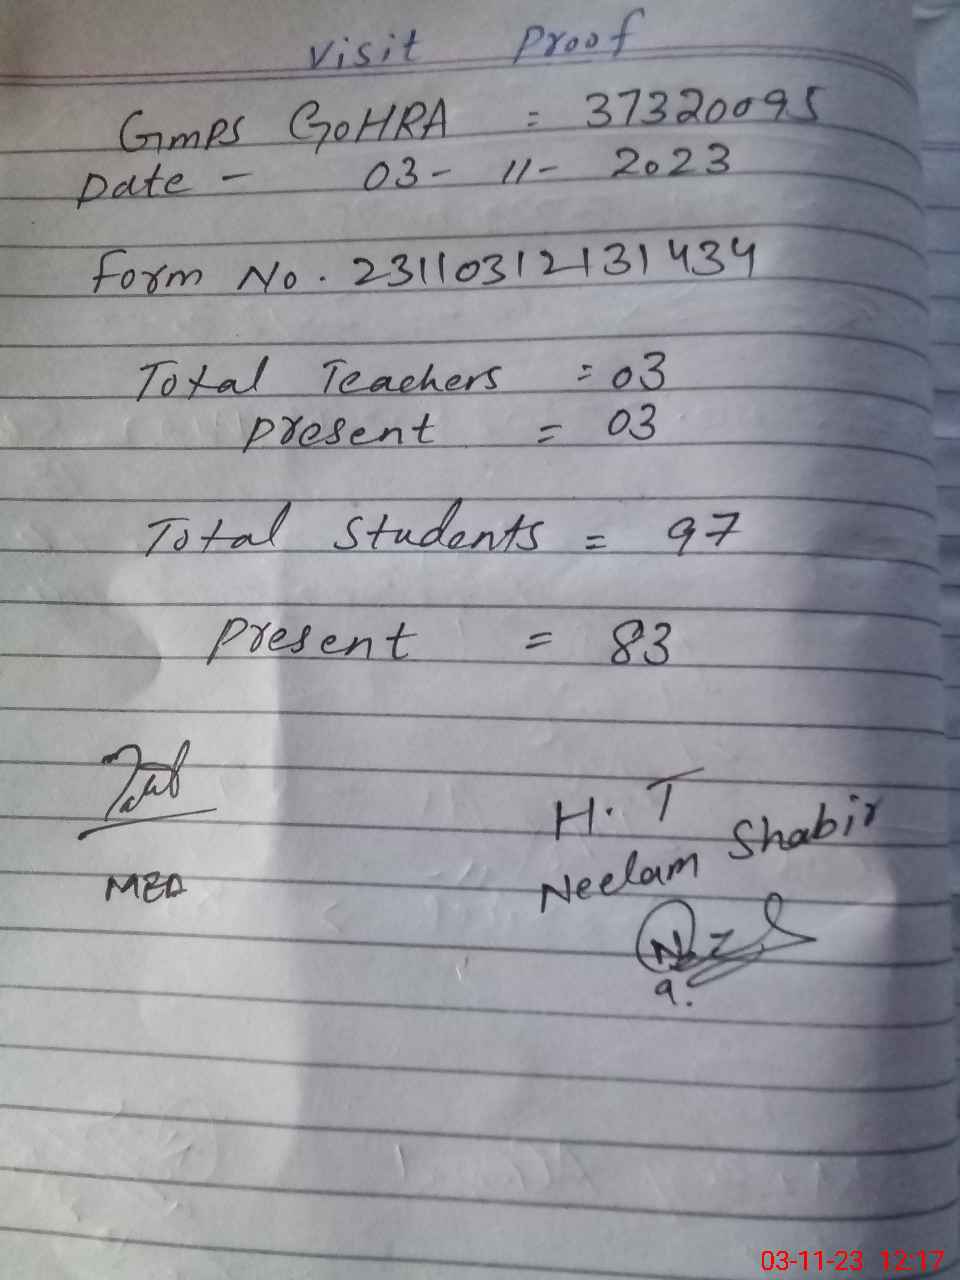 Visit Proof
GMPS GOHRA = 37320095
Date - 03-11-2023
Form No. 23110312131434
Total Teachers = 03
Present = 03
Total Students = 97
Present = 83
H.T
Neelam Shabir
MEA
03-11-23 12:17